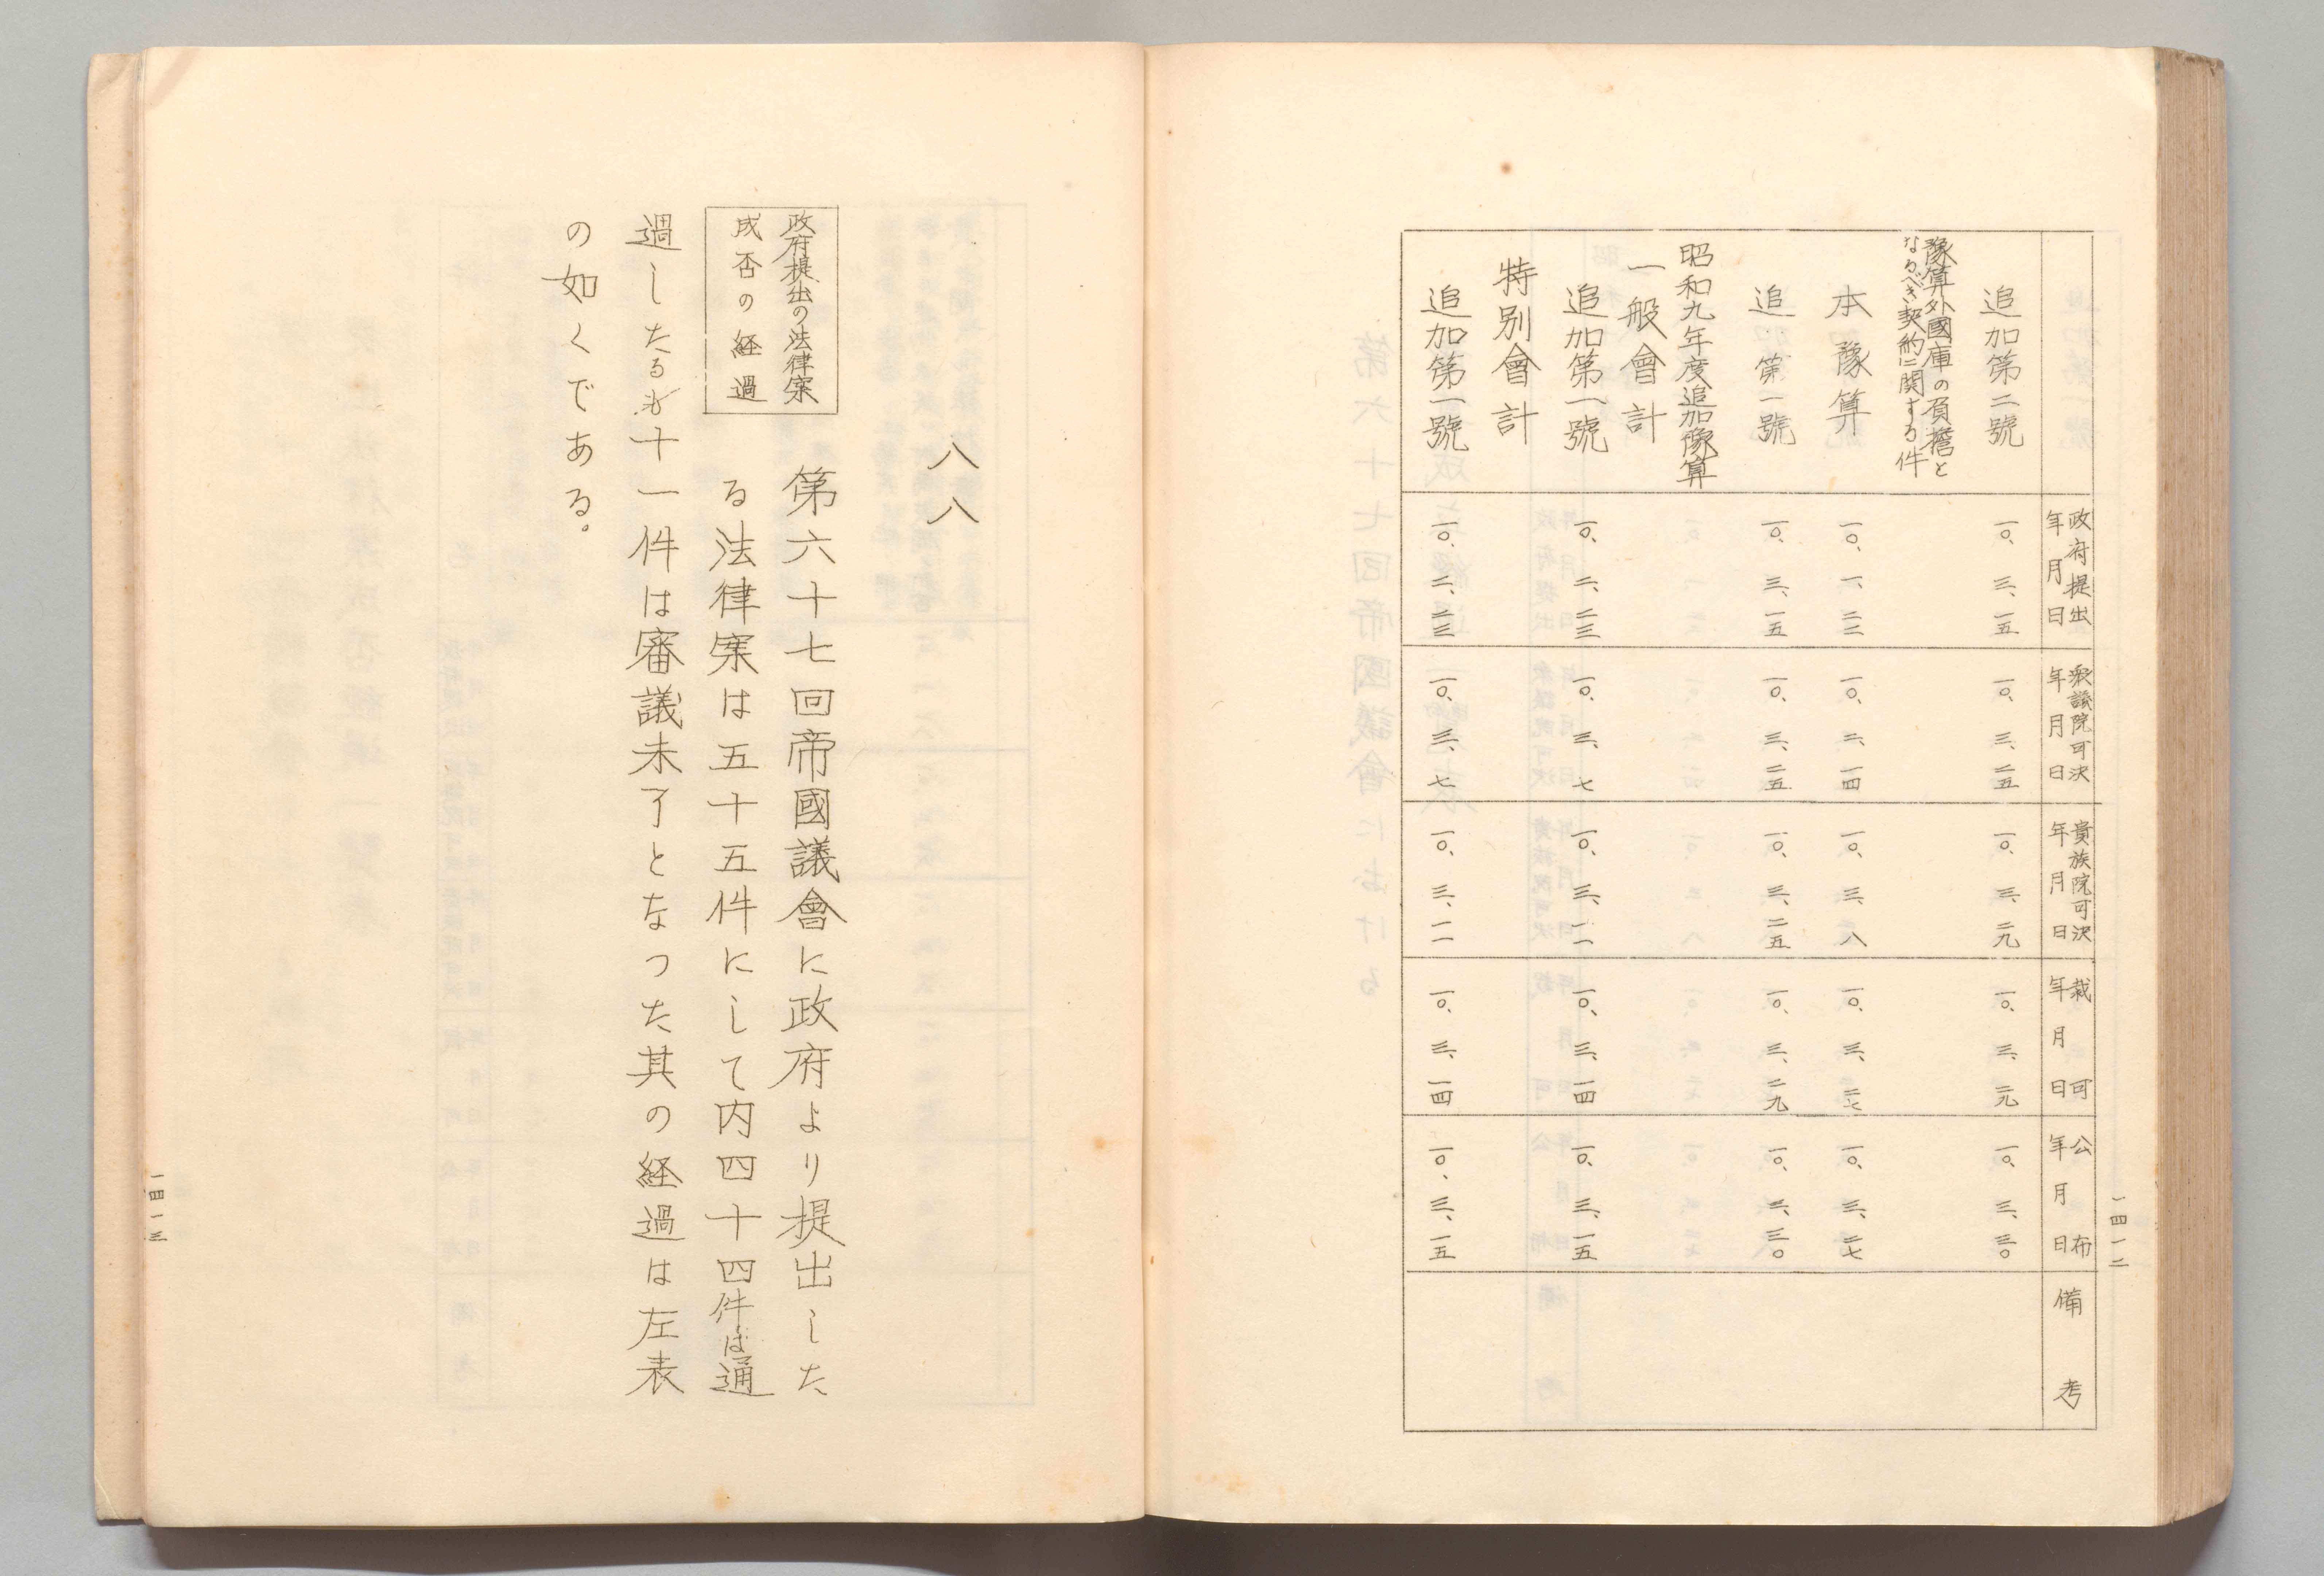 政府提出
年月日
衆議院可決
年月日
貴族院可決
年月日
裁可
年月日
公布
年月日
備考
追加第二號
一〇、三、一五
一〇、三、二五
一〇、三、二九
一〇、三、二九
一〇、三、三〇
豫算外國庫の負擔と
なるべき契約に関する件
本豫算
一〇、一、二二
一〇、二、一四
一〇、三、八
一〇、三、二七
一〇、三、二七
追第一號
一〇、三、一五
一〇、三、二五
一〇、三、二五
一〇、三、二九
一〇、三、三〇
昭和九年度追加豫算
一般會計
追加第一號
一〇、二、二三
一〇、三、七
一〇、三、一一
一〇、三、一四
一〇、三、一五
特別會計
追加第一號
一〇、二、二三
一〇、三、七
一〇、三、一一
一〇、三、一四
一〇、三、一五
一四一二
八八
政府提出の法律案
成否の経過
第六十七回帝國議會に政府より提出した
る法律案は五十五件にして内四十四件は通
過したるが十一件は審議未了となつた其の経過は左表
の如くである。
一四一三